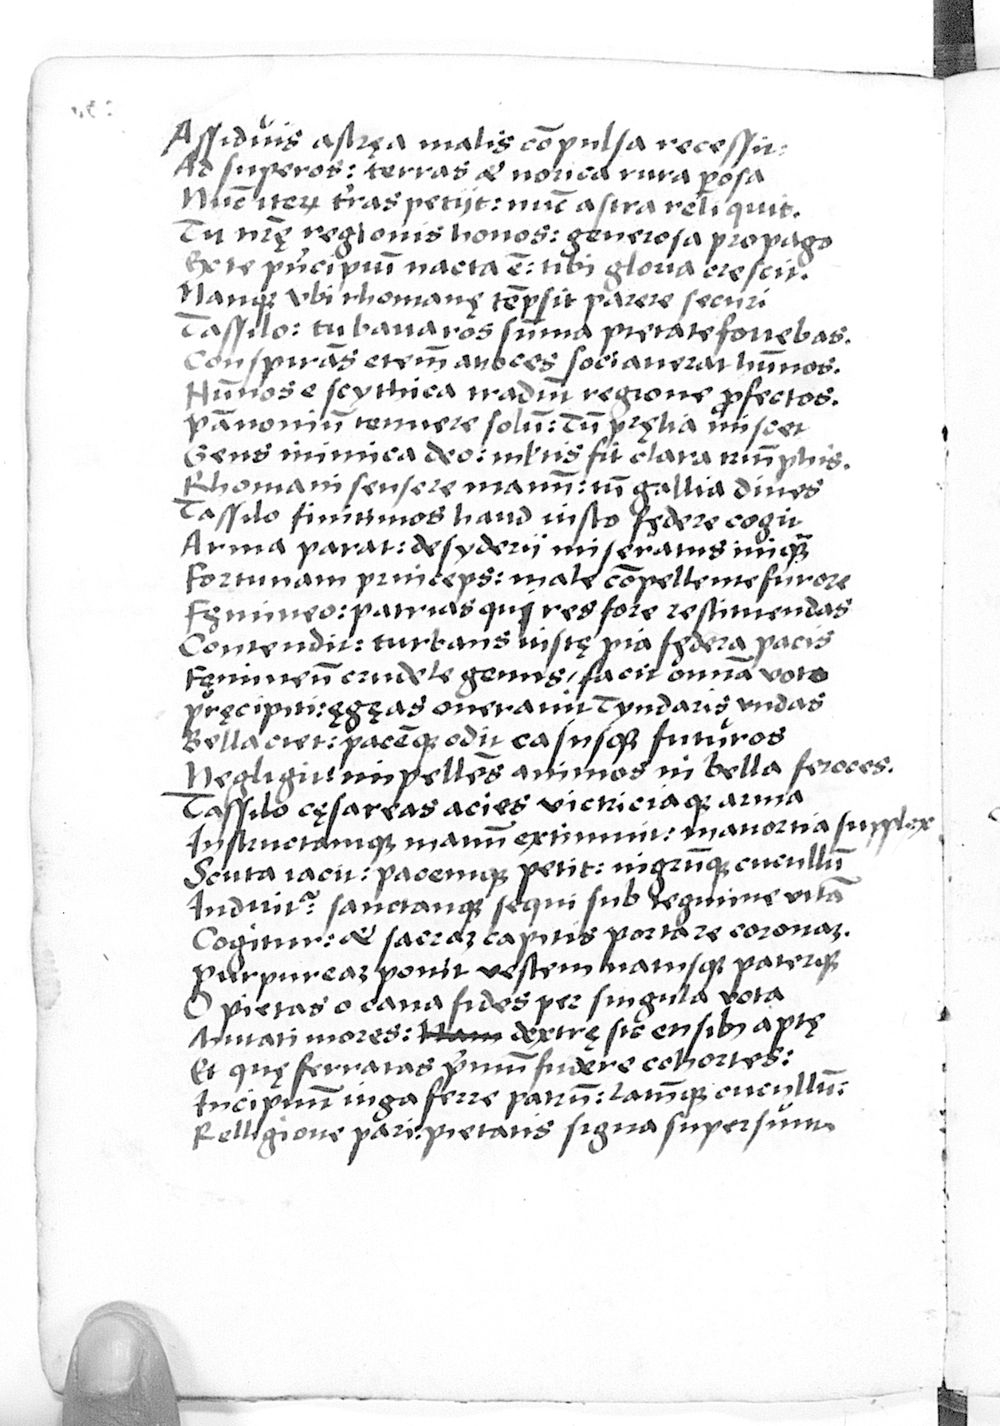 Assiduis astręa malis cōpulsa recessit:
Ad superos: terras & norica rura perosa
Nūc iterꝝ tr̄as petijt: nūc astra reliquit.
Tu nr̄ę regionis honos: generosa propago
Ex te prīcipiū nacta ē: tibi gloria crescit.
Nanqꝫ vbi rhomanę tēpsit parere securi
Tassilo: tu bauaros sūma pietate fouebas.
Conspirās etem̄ atroces sociauerat hūnos.
Hūnos e scythica tradūt regione ꝓfectos.
Pānoniū tenuere solū: Tū pręlia miscet
Gens inimica deo: ml̄tis fit clara triūphis.
Rhomani sensere manū: tū gallia diues
Tassilo finitimos haud iusto fędere cogit
Arma parat: desyderij miserātus iniquā
Fortunam princeps: male cōpellente furore
Fęmineo: patrias qui res fore restituendas
Contendit: turbans iustę pia fędera pacis
Fęmineū crudele genus / facit omnia voto
Pręcipiti: ęgęas onerauit Tyndaris vndas
Bella ciet: pacēqꝫ odit casusqꝫ futuros
Negligit impellēs animos in bella feroces.
Tassilo cęsareas acies victriciaqꝫ arma
Instructamqꝫ manū extimuit: mauortia supplex
Scuta iacit: pacemqꝫ petit: nigrūqꝫ cucullū
Induitꝛ: sanctamqꝫ sequi sub tegmine vitā
Cogitur: & sacraꝫ capitis portare coronaꝫ.
Purpureaꝫ ponit vestem natusqꝫ paterqꝫ
O pietas o cana fides per singula vota
Mutati mores: dextrę sic ensibꝫ aptę
Et quę ferratas prīmū fudere cohortes:
Incipiūt iuga ferre patrū: latūqꝫ cucullū:
Relligione pari: pietatis signa supersunt